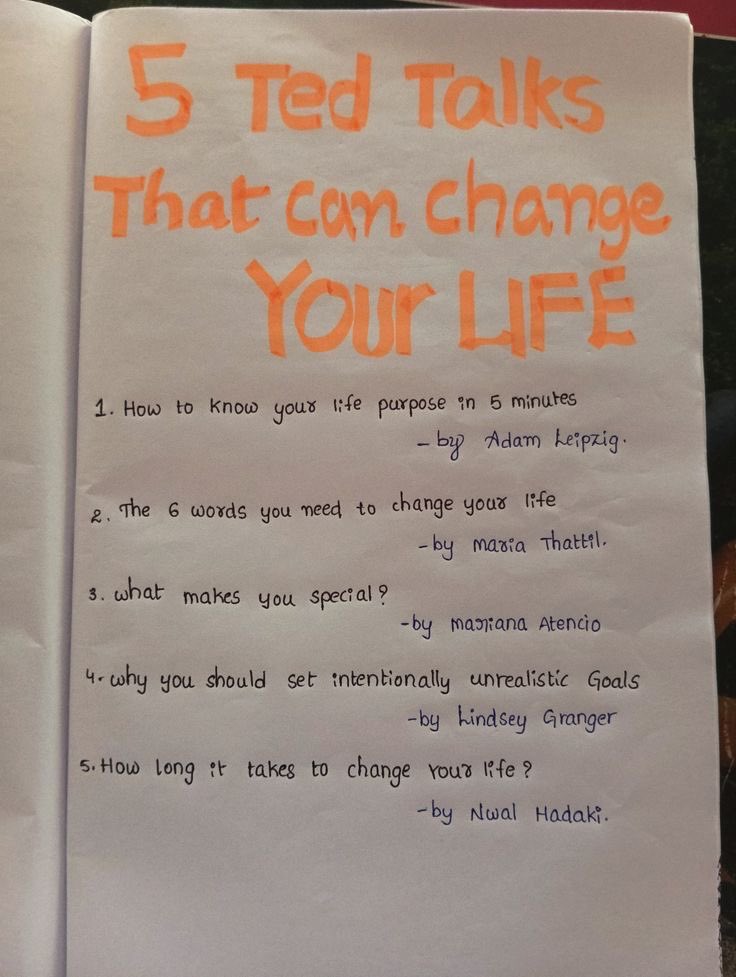 5 Ted Talks
That can change
Your LIFE
1. How to know your life purpose in 5 minutes
- by Adam Leipzig.
2. The 6 words you need to change your life
- by Maria Thattil.
3. What makes you special?
- by Mariana Atencio
4. Why you should set intentionally unrealistic Goals
- by Lindsey Granger
5. How long it takes to change Your life?
- by Nwal Hadaki.